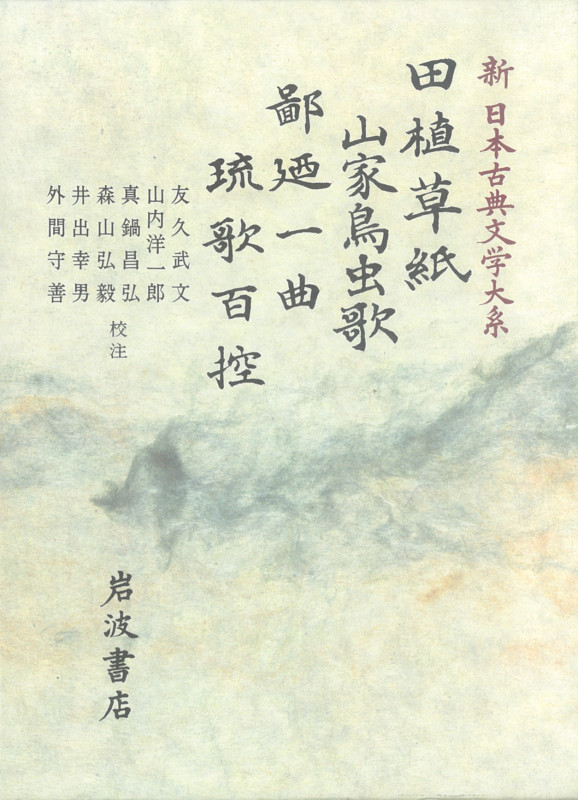 新 日本古典文学大系
田植草紙
山家鳥虫歌
鄙廼一曲
琉歌百控
友久武文
山内洋一郎
真鍋昌弘
森山弘毅
井出幸男
外間守善
校注
岩波書店